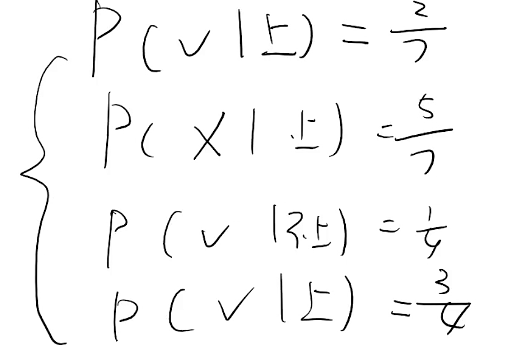 P(✓|上) = 2/7
P(✗|上) = 5/7
P(✓|不上) = 1/4
P(✓|上) = 3/4